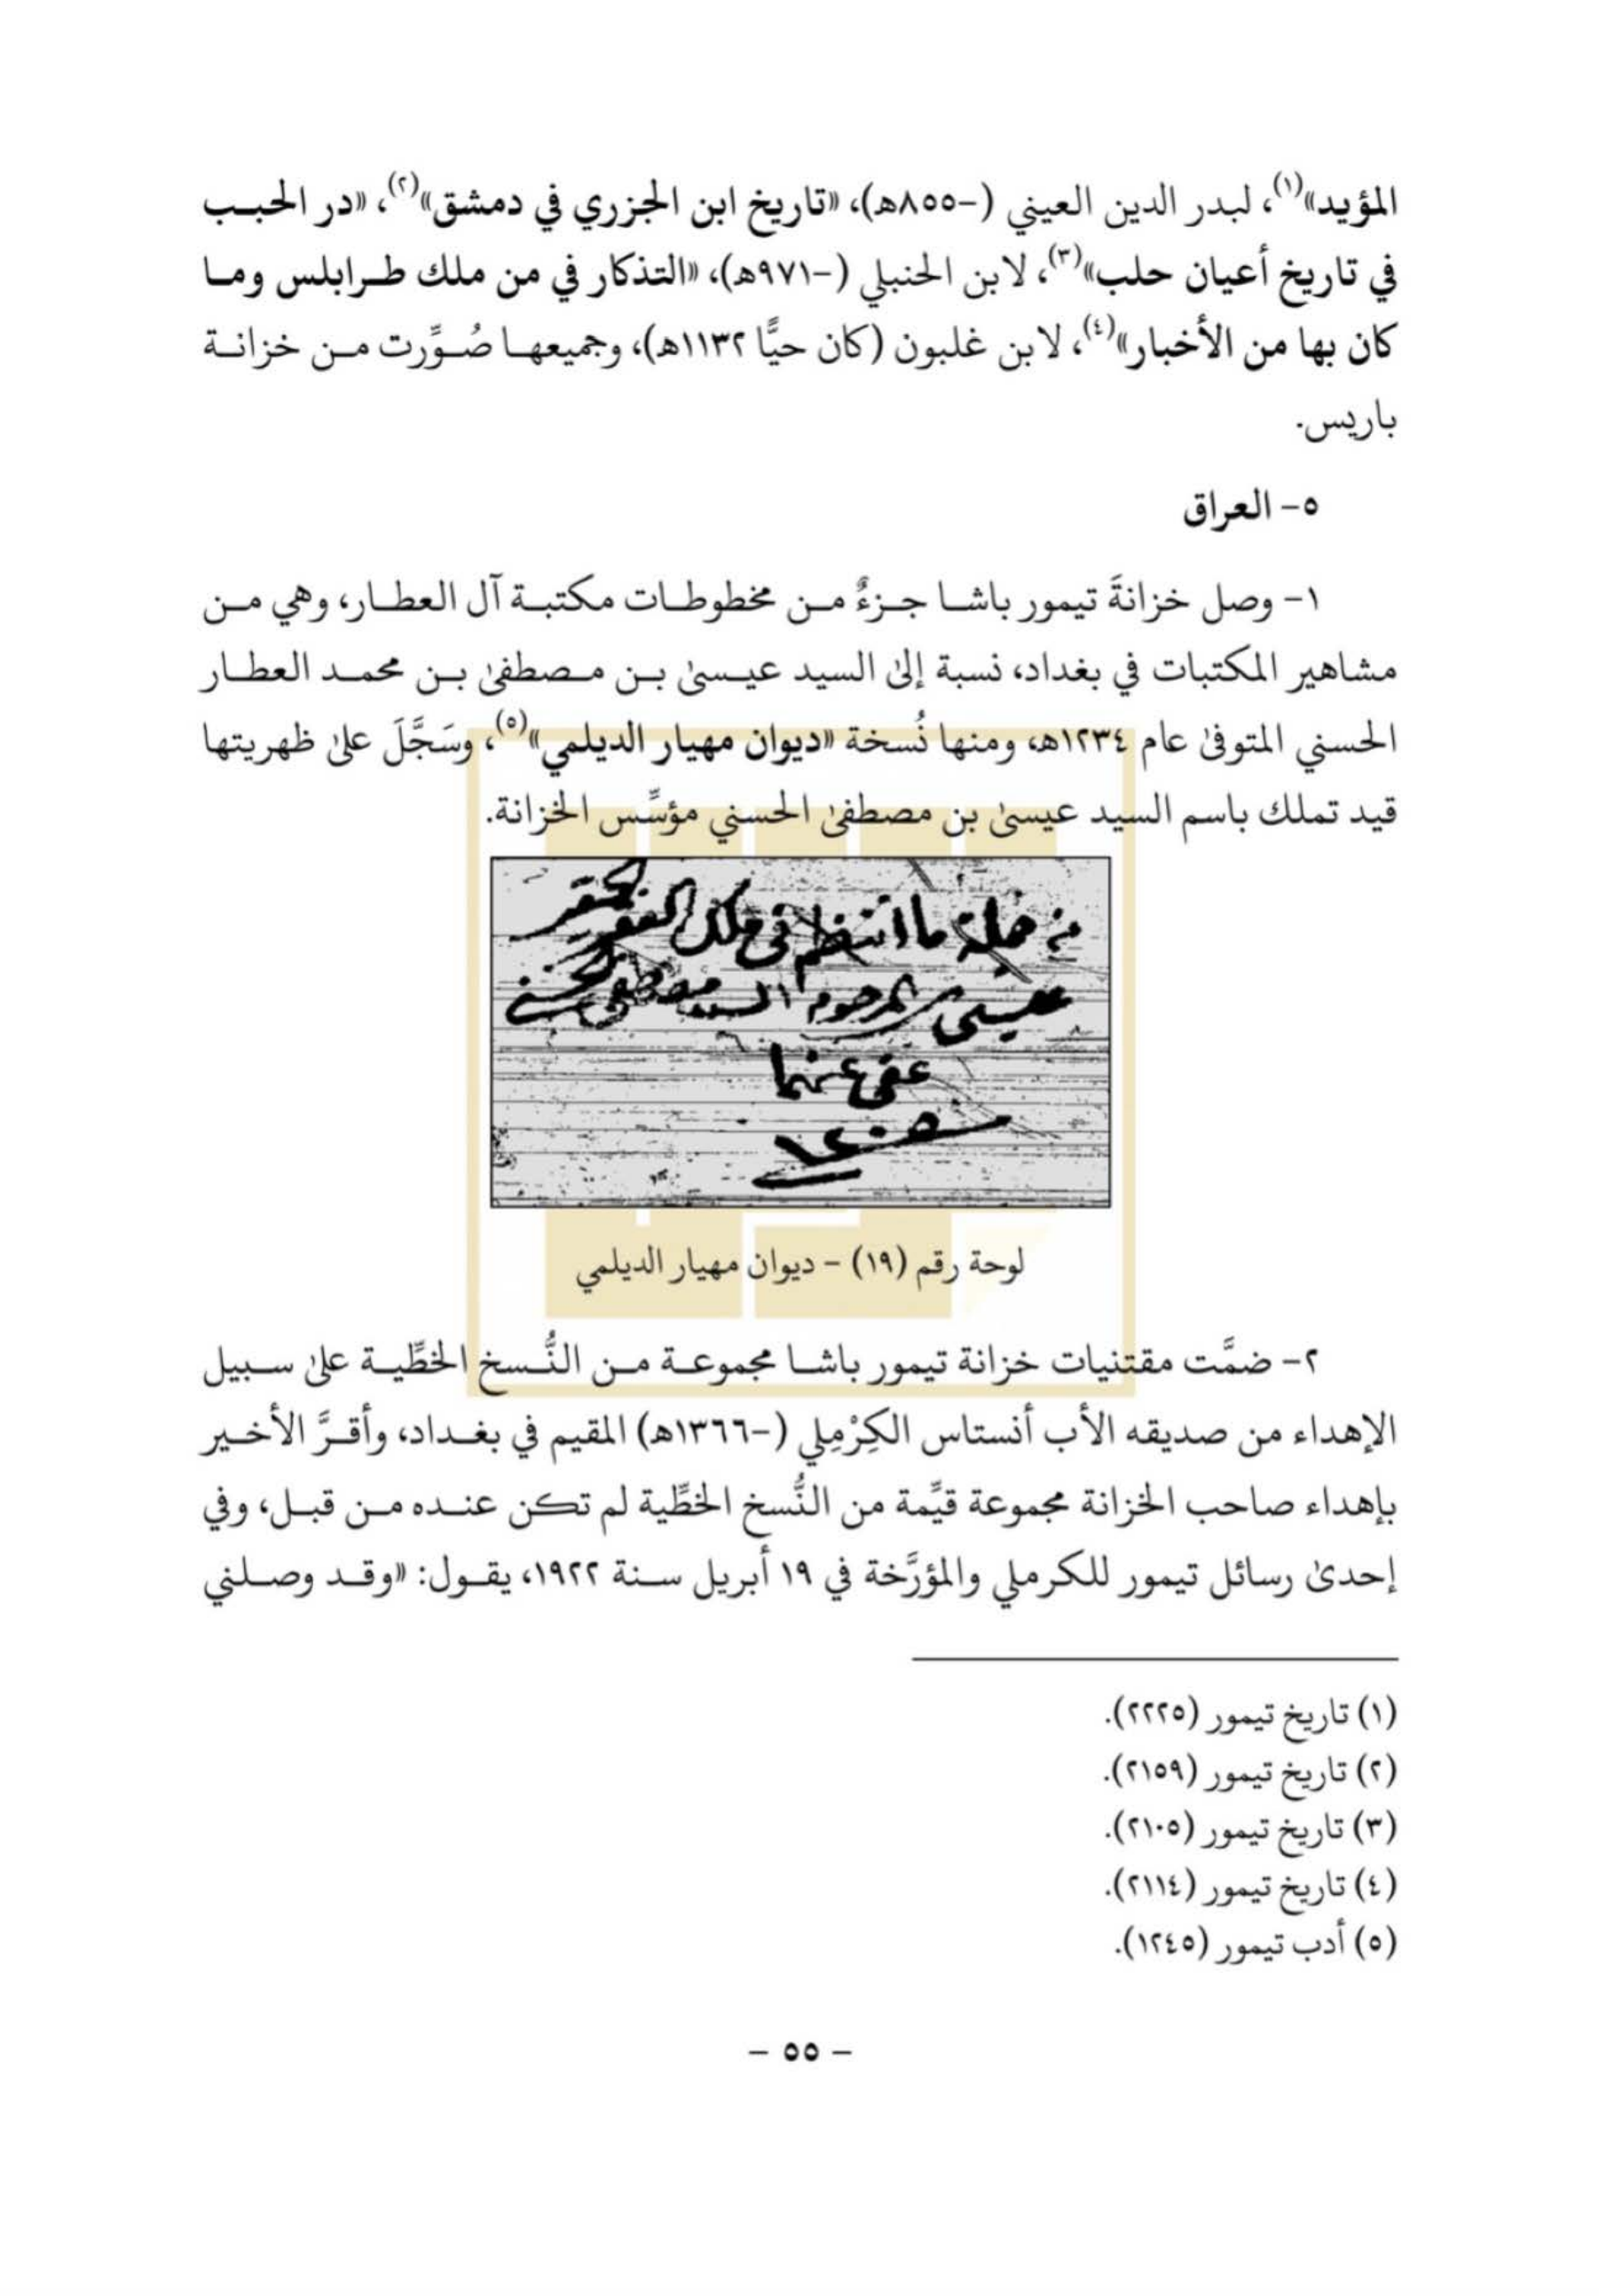 المؤيد»(١)، لبدر الدين العيني (-٨٥٥هـ)، «تاريخ ابن الجزري في دمشق»(٢)، «در الحبب
في تاريخ أعيان حلب»(٣)، لابن الحنبلي (-٩٧١هـ)، «التذكار في من ملك طرابلس وما
كان بها من الأخبار»(٤)، لابن غلبون (كان حيًّا ١١٣٢هـ)، وجميعها صُوِّرت من خزانة
باريس.
٥- العراق
١- وصل خزانةَ تيمور باشا جزءٌ من مخطوطات مكتبة آل العطار، وهي من
مشاهير المكتبات في بغداد، نسبة إلىٰ السيد عيسىٰ بن مصطفىٰ بن محمد العطار
الحسني المتوفىٰ عام ١٢٣٤هـ، ومنها نُسخة «ديوان مهيار الديلمي»(٥)، وسَجَّلَ علىٰ ظهريتها
قيد تملك باسم السيد عيسىٰ بن مصطفىٰ الحسني مؤسِّس الخزانة.
من جملة ما انتظم في ملك الفقير الحقير
عيسى بن المرحوم السيد مصطفى الحسني
عفي عنهما
لوحة رقم (١٩) - ديوان مهيار الديلمي
٢- ضمَّت مقتنيات خزانة تيمور باشا مجموعة من النُّسخ الخطِّية علىٰ سبيل
الإهداء من صديقه الأب أنستاس الكِرْمِلي (-١٣٦٦هـ) المقيم في بغداد، وأقرَّ الأخير
بإهداء صاحب الخزانة مجموعة قيِّمة من النُّسخ الخطِّية لم تكن عنده من قبل، وفي
إحدىٰ رسائل تيمور للكرملي والمؤرَّخة في ١٩ أبريل سنة ١٩٢٢، يقول: «وقد وصلني
(١) تاريخ تيمور (٢٢٢٥).
(٢) تاريخ تيمور (٢١٥٩).
(٣) تاريخ تيمور (٢١٠٥).
(٤) تاريخ تيمور (٢١١٤).
(٥) أدب تيمور (١٢٤٥).
- ٥٥ -